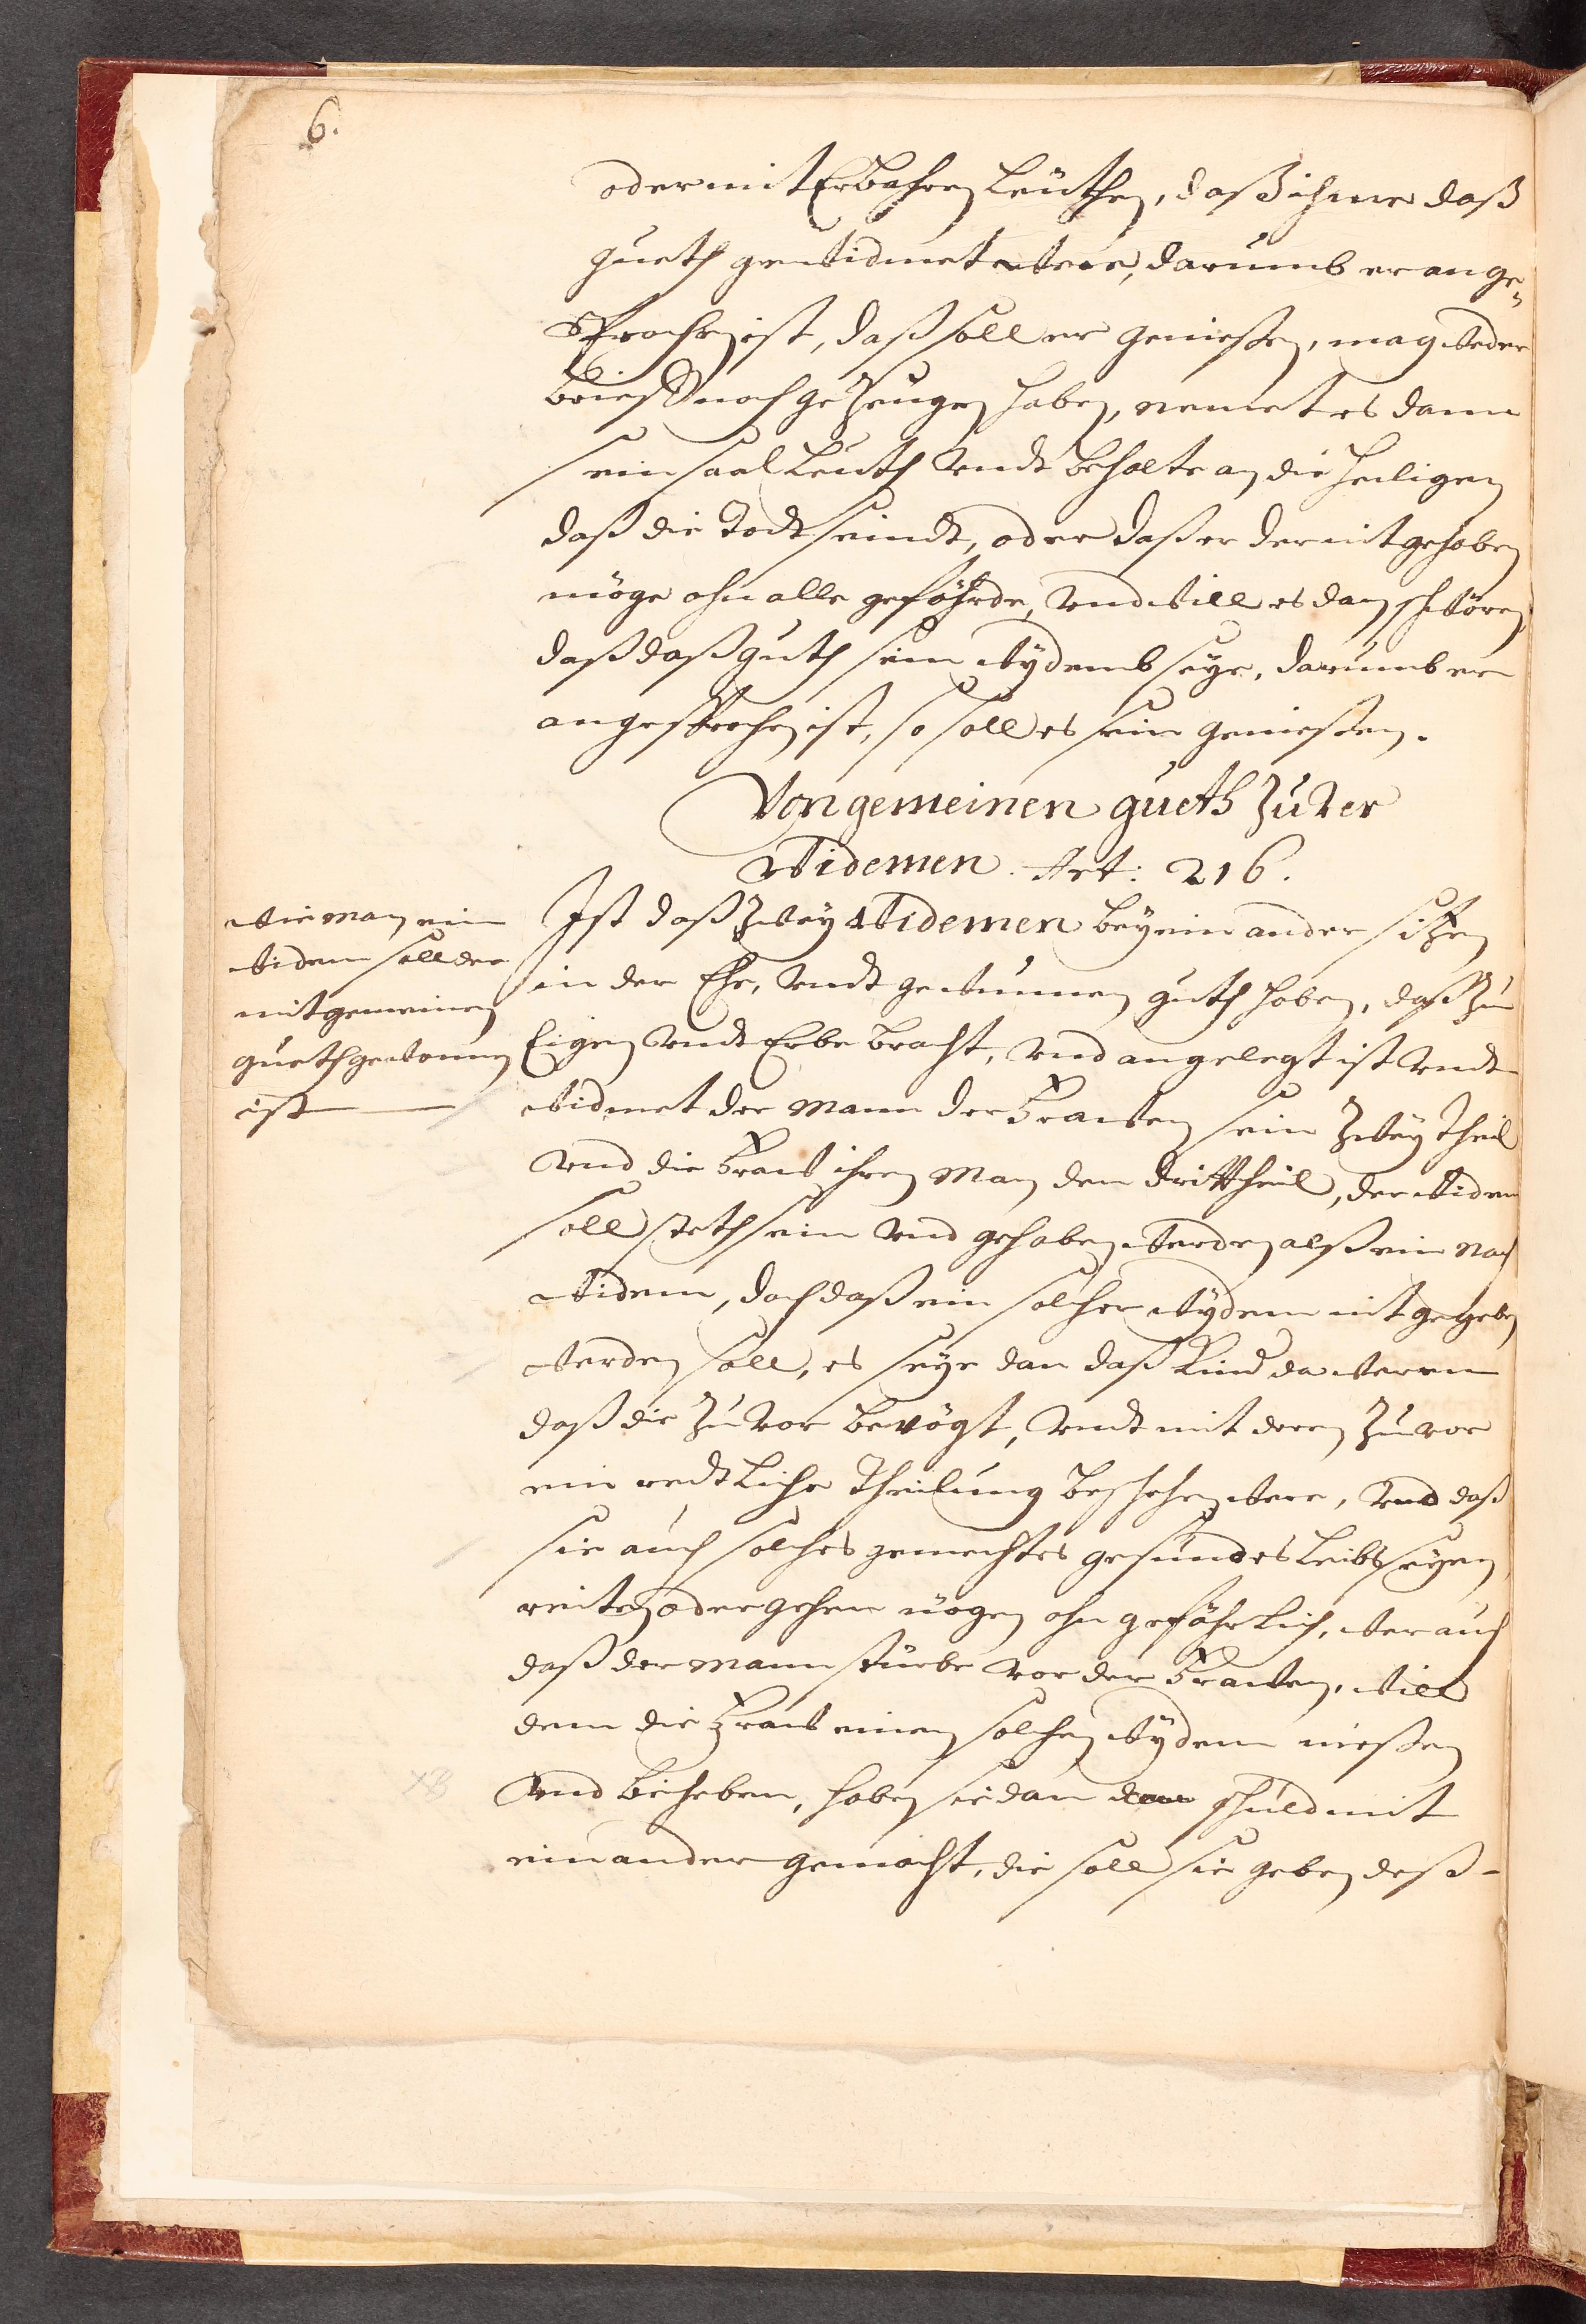 6.
oder mit Erbahren Leüthen, daß ihme daß
gueth gewidmet were, darumb er ange„
Sprochen ist, daß soll er genießen, mag weder
brieff noch gezeugen haben, nemet es dann
sein saal Leuth vndt behalte an die heiligen
daß die todt seindt, oder daß er der nit gehaben
möge ohn alle geföhrde, vnd will es dan schwören
daß daß guth sein wydemb seye, darumb er
angesprochen ist, so soll es sein genießen.
Von gemeinen gueth zu ver
widemen. Art: 216.
wie man ein
widem soll der
mit gemeinen
gueth gewonnen
ist
Ist daß zwey widemen bey ein ander sitzen
in der Ehe, vndt gewunnen guth haben, daß zu
Eigen vndt Erbe bracht, vnd angelegt ist vndt
widmet der Mann der Frawen sein zwey theil
vnd die Fraw ihren Man den dritttheil, der widem
soll steth sein vnd gehaben werden alß ein nach
widem, doch daß ein solcher wydem nit gegeben
werden soll, es seye dan daß Kind da weren
daß die zuvor bevögt, vndt mit deren zuvor
ein redtliche theilung beschehen were, vnd daß
sie auch solches gemechtes gesundes Leibs seyen
reiten oder gehen mögen ohn geföhrlich, wer auch
daß der Mann stürbe vor der Frawen, will
dem die Fraw einen solchen wydem nießen
vnd beheben, haben sie dan schuld mit
einander gemacht, die soll sie geben deß-